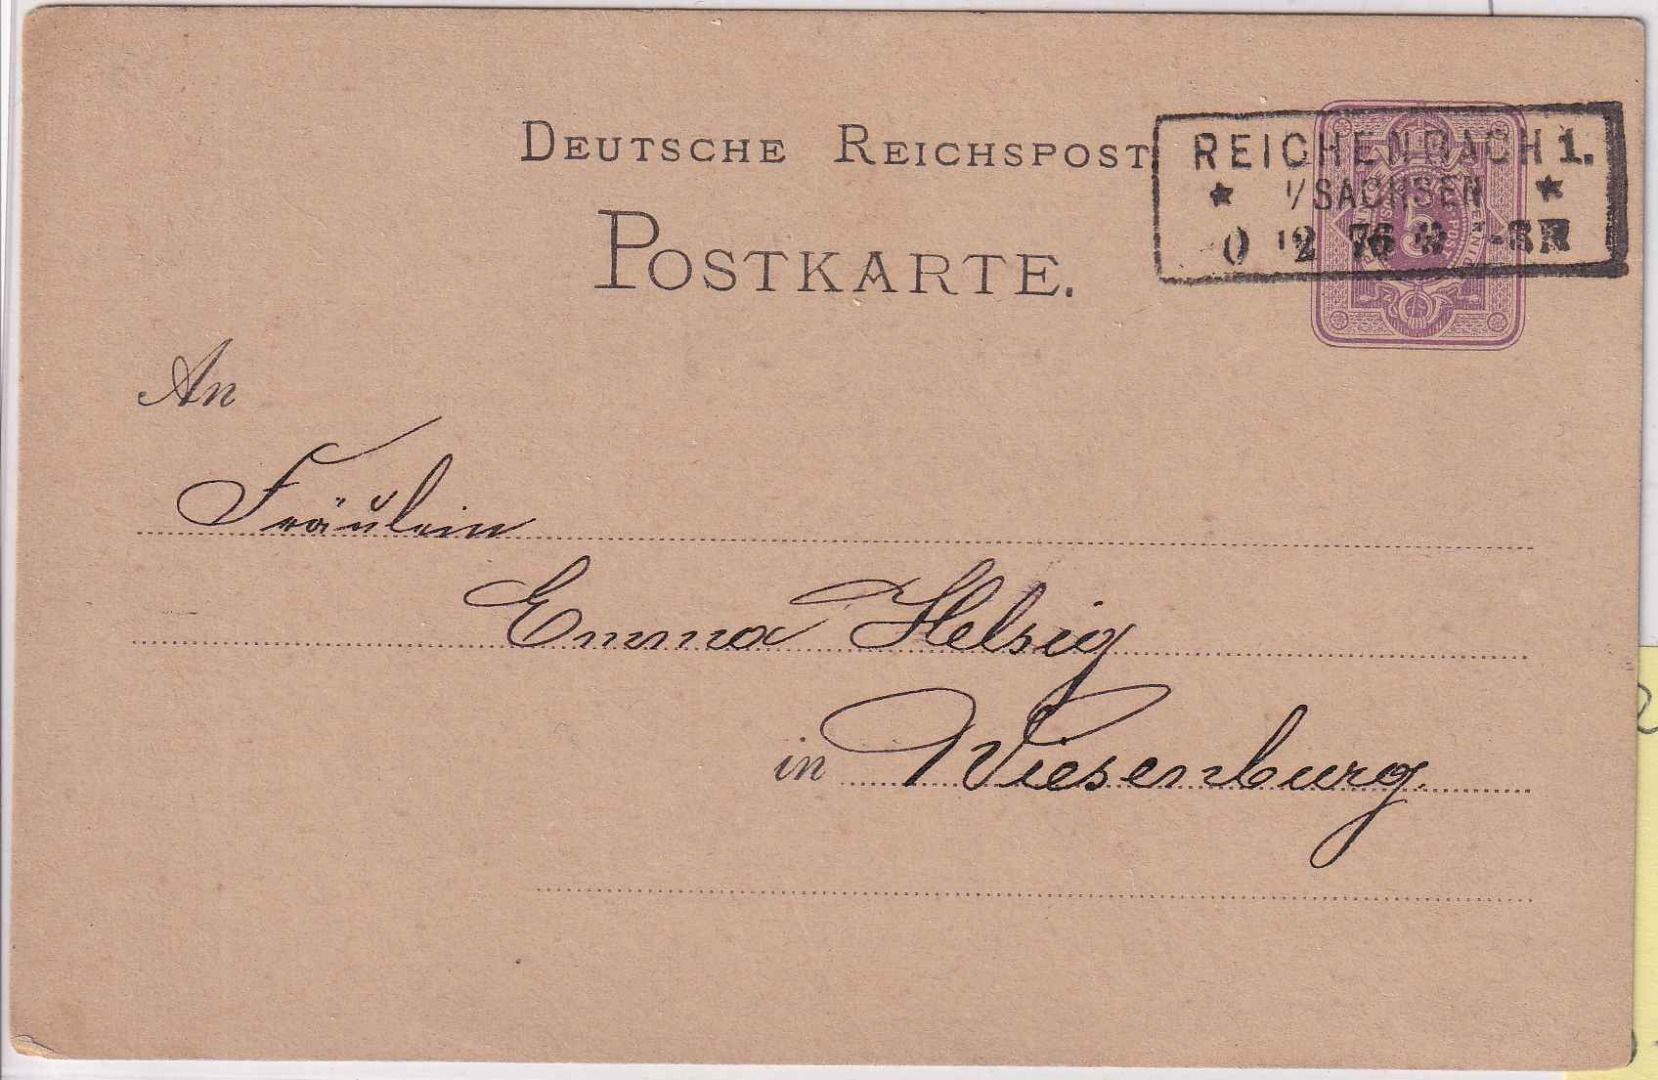 DEUTSCHE REICHSPOST
POSTKARTE.
REICHENBACH 1.
I/SACHSEN
12 76
5
An
Fräulein
Emma Helsig
in Wiesenburg.